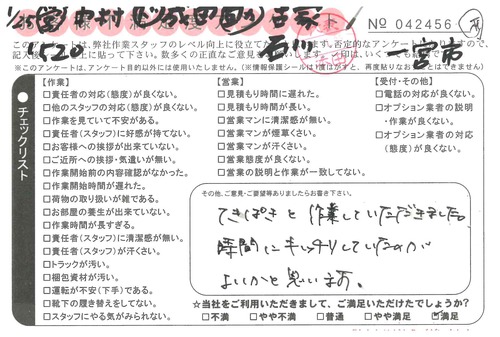 1/25 ㊂ 中村
1520 石川 一宮市
No 042456
このアンケートは、弊社作業スタッフのレベル向上に役立て
※このアンケートは、アンケート目的以外には使用いたしません。
チェックリスト
【作業】
□責任者の対応(態度)が良くない。
□他のスタッフの対応(態度)が良くない。
□作業を見ていて不安がある。
□責任者(スタッフ)に好感が持てない。
□お客様への挨拶が出来ていない。
□ご近所への挨拶・気遣いが無い。
□作業開始前の内容確認がなかった。
□作業開始時間が遅れた。
□荷物の取り扱いが雑である。
□お部屋の養生が出来ていない。
□作業時間が長すぎる。
□責任者(スタッフ)に清潔感が無い。
□責任者(スタッフ)が汗くさい。
□トラックが汚い。
□梱包資材が汚い。
□運転が不安(下手)である。
□靴下の履き替えをしてない。
□スタッフにやる気がみられない。
【営業】
□見積もり時間に遅れた。
□見積もり時間が長い。
□営業マンに清潔感が無い。
□営業マンが煙草くさい。
□営業マンが汗くさい。
□営業態度が良くない。
□営業の説明と作業が一致してない。
【受付・その他】
□電話の対応が良くない。
□オプション業者の説明
・作業が良くない。
□オプション業者の対応
(態度)が良くない。
その他、ご意見・ご要望等ありましたらお書き下さい。
てきぱきと作業していただきました。
時間にキッチリしていたのが
よいかと思います。
☆当社をご利用いただきまして、ご満足いただけたでしょうか?
□不満 □やや不満 □普通 □やや満足 ☑満足